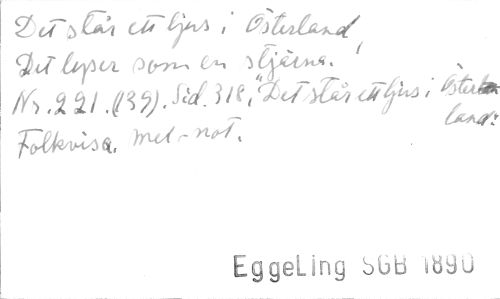 Det står ett ljus i Österland,
Det lyser som en stjärna.
Nr. 221. (139). Sid. 318, "Det står ett ljus i Österland:
Folkvisa. mel-not.
EggeLing SGB 1890